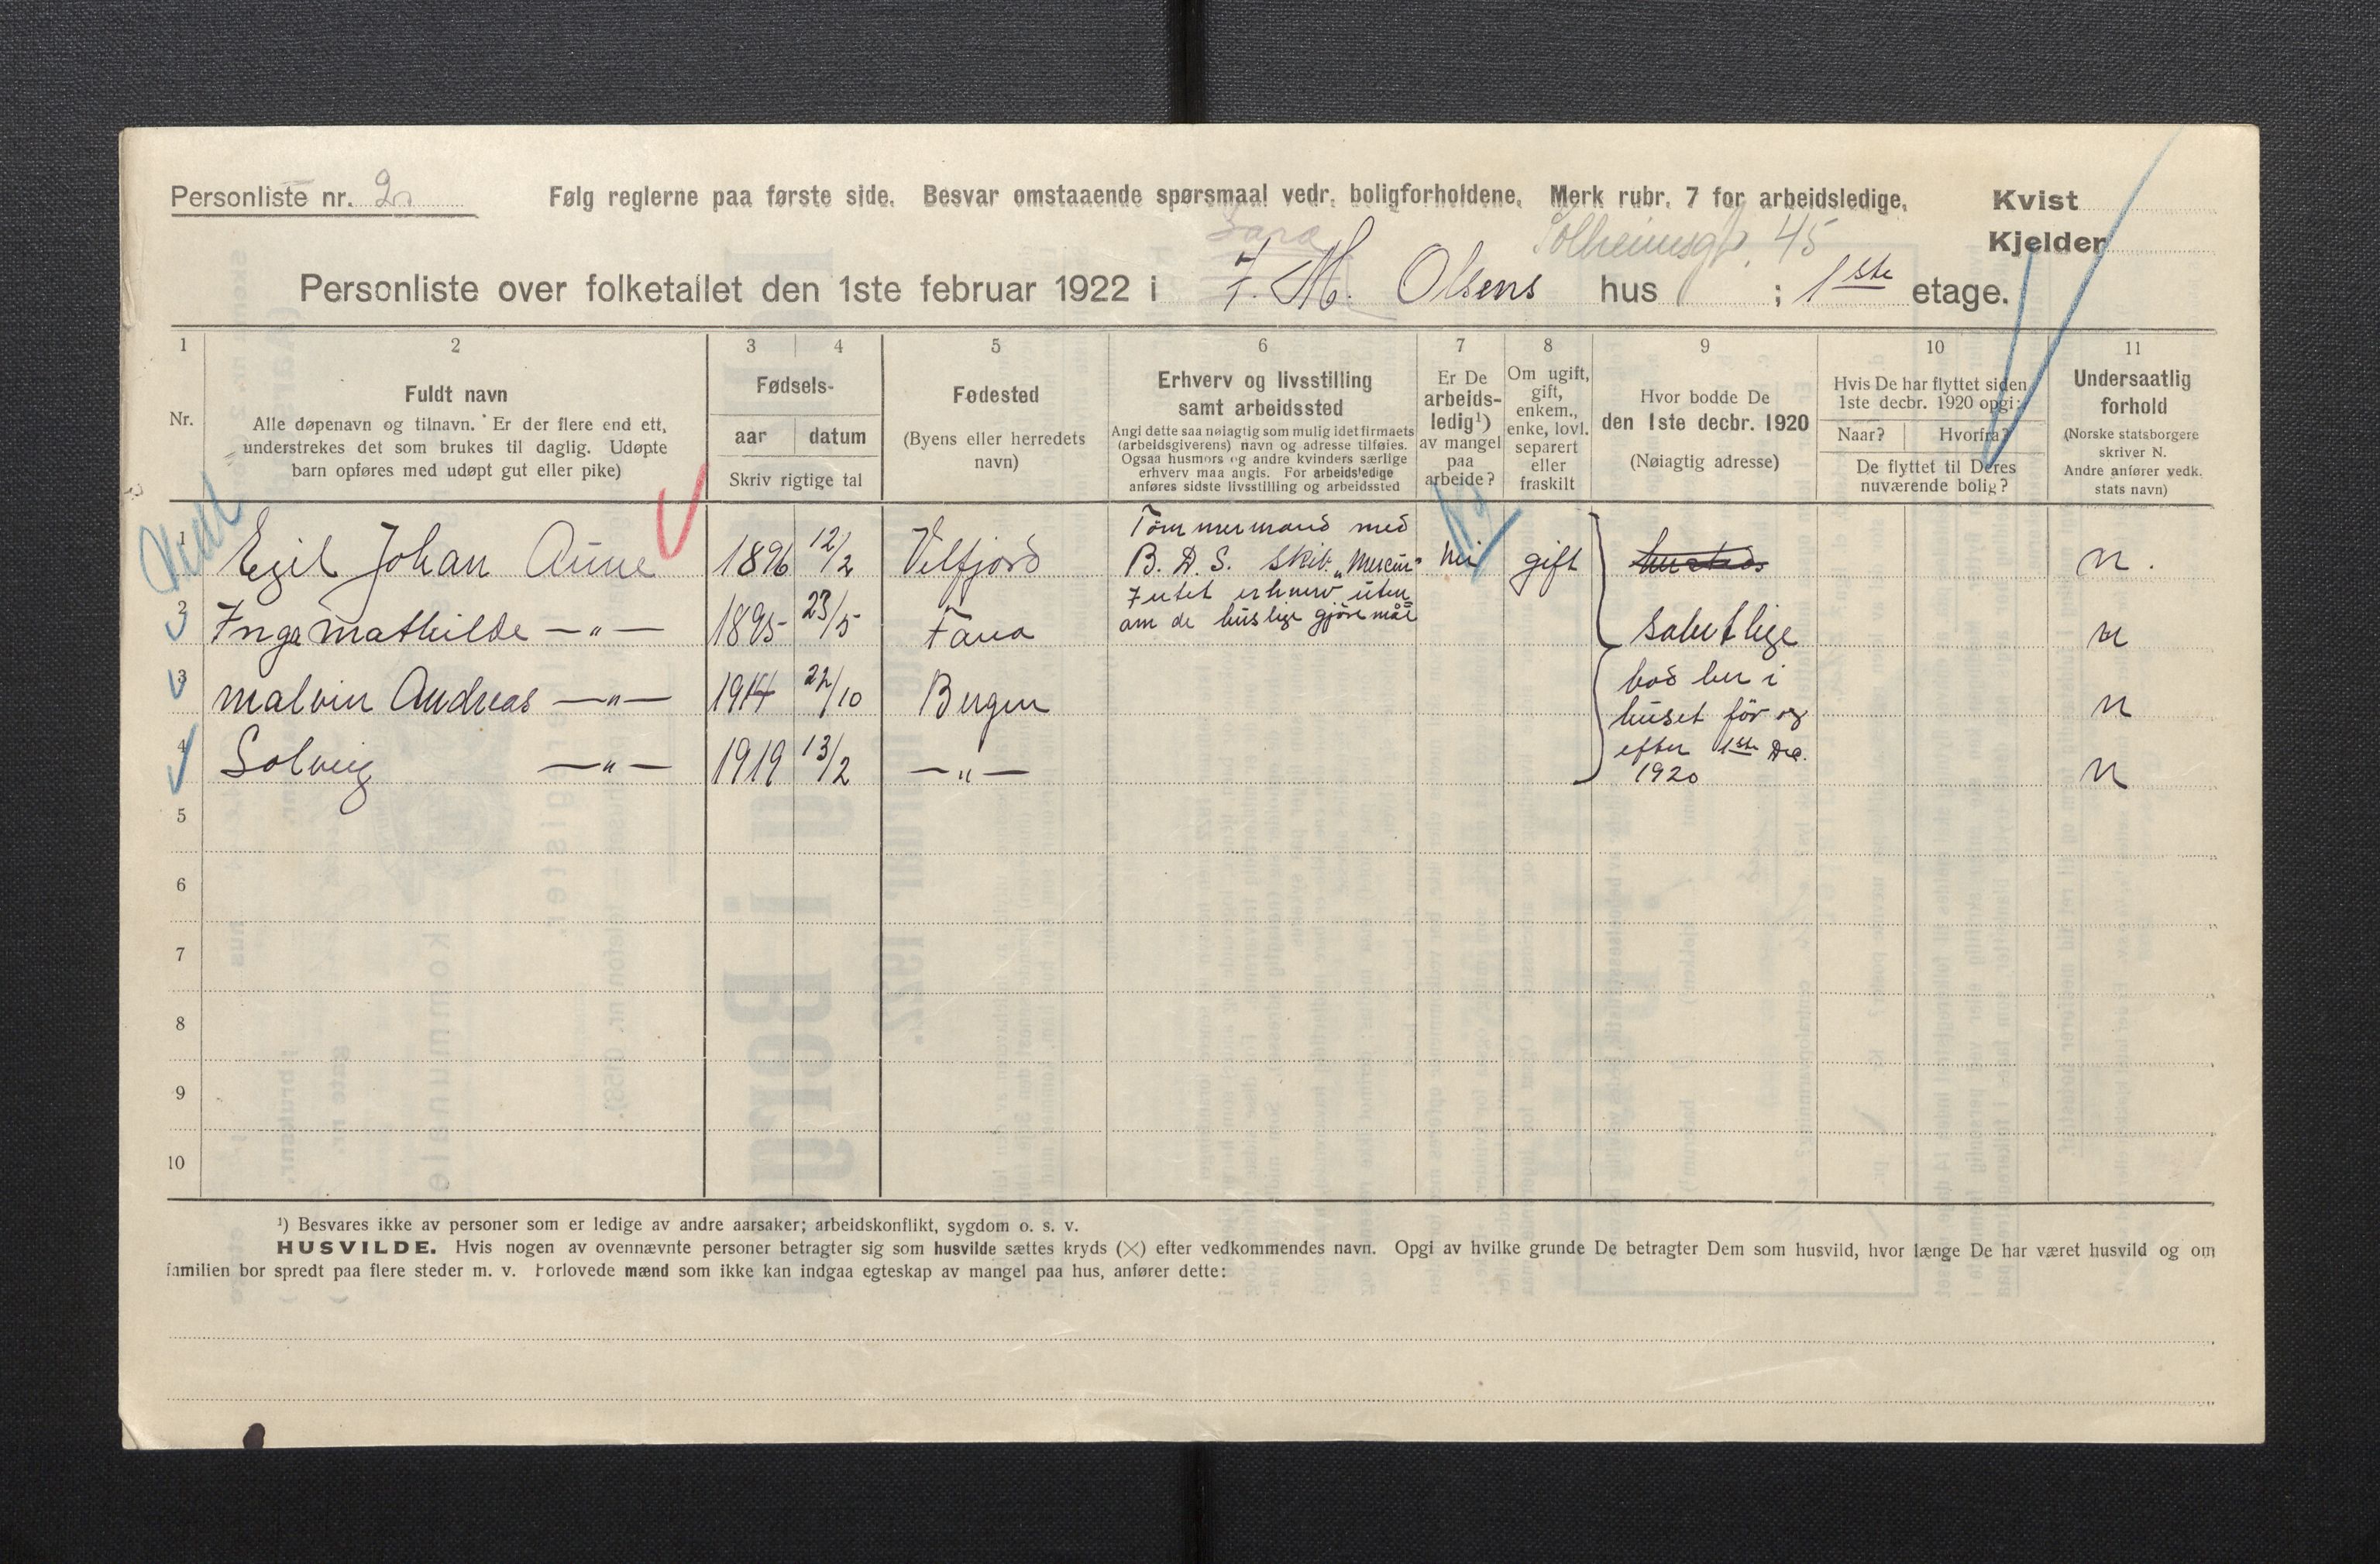 Personliste nr. 2 Følg reglerne paa første side. Besvar omstaaende spørsmaal vedr. boligforholdene. Merk rubr. 7 for arbeidsledige. Kvist
Solheimsgt. 45 Kjelder
Personliste over folketallet den 1ste februar 1922 i J. M. Olsens hus ; 1ste etage.
1 2 3 4 5 6 7 8 9 10 11
Nr.
Fuldt navn
Alle døpenavn og tilnavn. Er der flere end ett,
understrekes det som brukes til daglig. Udøpte
barn opføres med udøpt gut eller pike)
Fødsels-
aar datum
Skriv rigtige tal
Fødested
(Byens eller herredets
navn)
Erhverv og livsstilling
samt arbeidssted
Angi dette saa nøiagtig som mulig idet firmaets
(arbeidsgiverens) navn og adresse tilføies.
Ogsaa husmors og andre kvinders særlige
erhverv maa angis. For arbeidsledige
anføres sidste livsstilling og arbeidssted
Er De
arbeids-
ledig¹)
av mangel
paa
arbeide?
Om ugift,
gift,
enkem.,
enke, lovl.
separert
eller
fraskilt
Hvor bodde De
den 1ste decbr. 1920
(Nøiagtig adresse)
Hvis De har flyttet siden
1ste decbr. 1920 opgi:
Naar? Hvorfra?
De flyttet til Deres
nuværende bolig?
Undersaatlig
forhold
(Norske statsborgere
skriver N.
Andre anfører vedk.
stats navn)
1 Egil Johan Aune 1896 12/2 Velfjord Tømmermand med
B. D. S. Skib. "Mercur" nei gift n.
2 Inga Mathilde —"— 1895 23/5 Fana Intet erhverv uten
om de huslige gjöremål samtlige n
3 Malvin Andreas —"— 1914 22/10 Bergen bod her i
huset før og n
4 Solveig —"— 1919 13/2 —"— efter 1ste Dec.
1920 n
5
6
7
8
9
10
¹) Besvares ikke av personer som er ledige av andre aarsaker; arbeidskonflikt, sygdom o. s. v.
HUSVILDE. Hvis nogen av ovennævnte personer betragter sig som husvilde sættes kryds (×) efter vedkommendes navn. Opgi av hvilke grunde De betragter Dem som husvild, hvor længe De har været husvild og om
familien bor spredt paa flere steder m. v. Forlovede mænd som ikke kan indgaa egteskap av mangel paa hus, anfører dette: